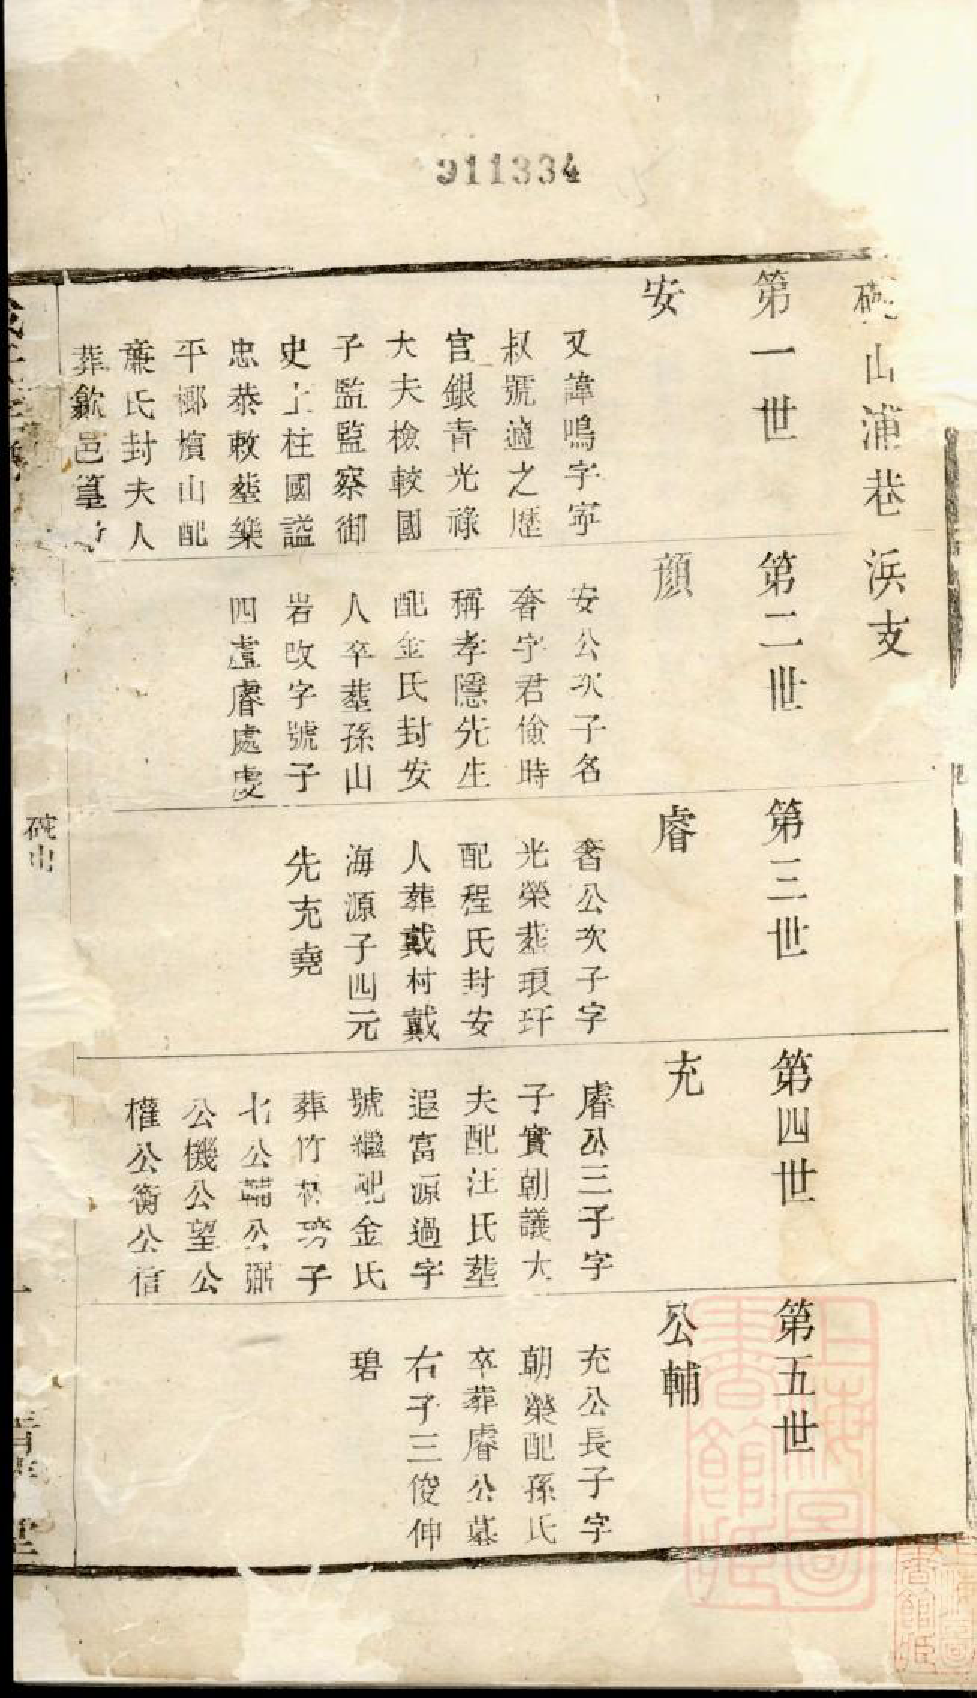 911334
碗山浦巷浜支
第一世
安
又諱鳴字寜
叔號適之歷
官銀青光祿
大夫檢較國
子監監察御
史上柱國諡
忠恭敕塟樂
平櫛橨山配
亷氏封夫人
葬歙邑篁
第二世
顏
安公次子名
奢字君儉時
稱孝隱先生
配金氏封安
人卒塟孫山
岩改字號子
四虗睿處虔
第三世
睿
奢公次子字
光榮塟琅玕
配程氏封安
人葬戴村戴
海源子四元
先充堯
第四世
充
睿公三子字
子實朝議大
夫配汪氏塟
遐富源過字
號繼配金氏
葬竹 子
七公輔公弼
公機公望公
權公衡公信
第五世
公輔
充公長子字
朝榮配孫氏
卒葬睿公墓
右子三俊伸
碧
碗山
上海圖書館藏